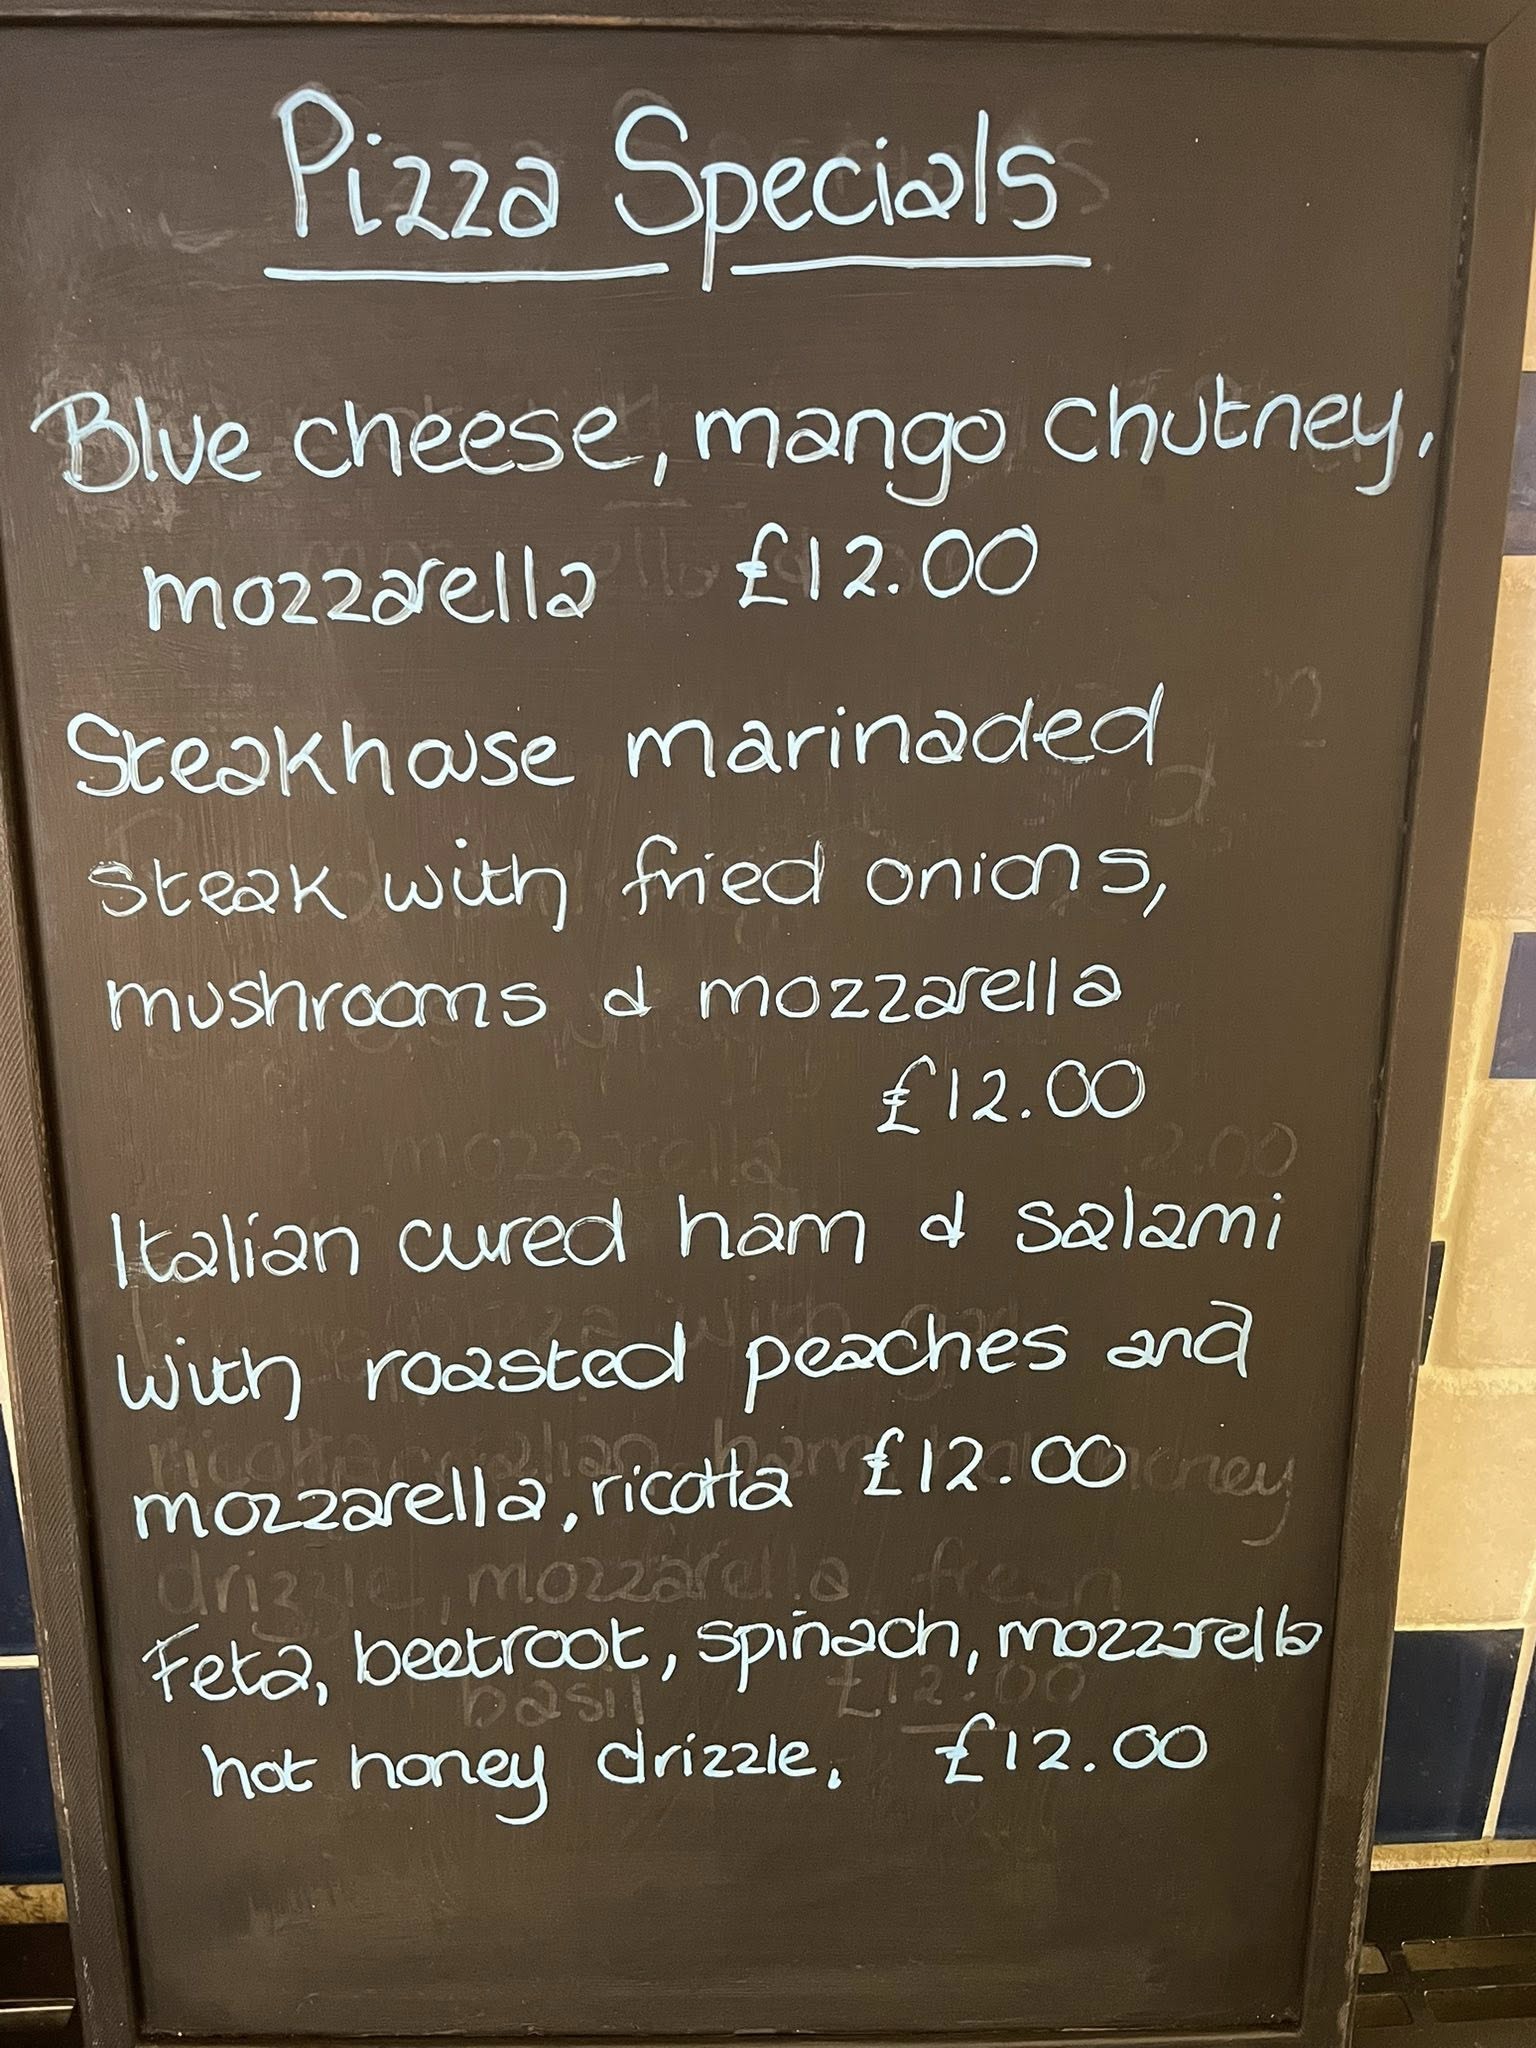 Pizza Specials
Blue cheese, mango chutney,
mozzarella £12.00
Steakhouse marinaded
steak with fried onions,
mushrooms & mozzarella
£12.00
Italian cured ham & salami
with roasted peaches and
mozzarella, ricotta £12.00
Feta, beetroot, spinach, mozzarella
hot honey drizzle. £12.00